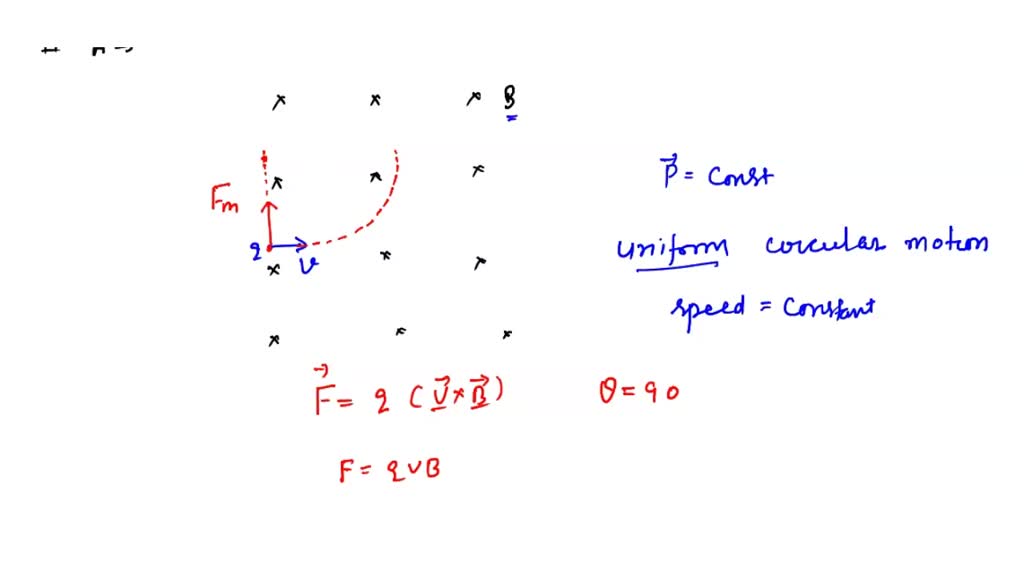 B
P⃗ = const
Fm
uniform circular motion
q
v
speed = constant
F⃗ = q (v⃗ × B⃗)
θ = 90
F = qvB